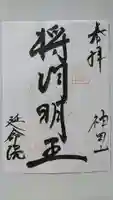 奉拝
神田山
将門明王
延命院